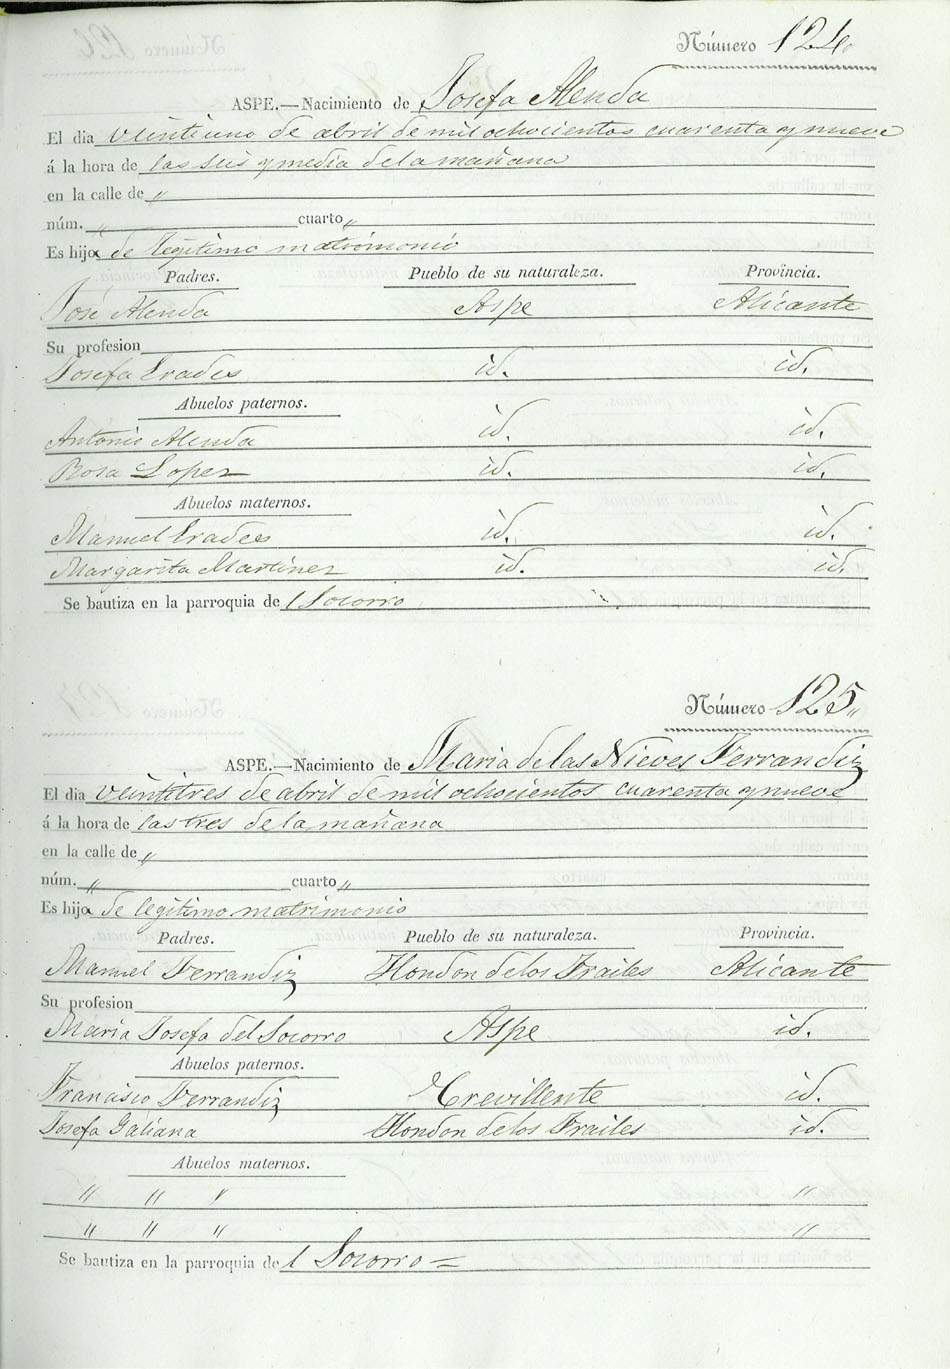 Número 124
ASPE.—Nacimiento de Josefa Alenda
El dia veintiuno de abril de mil ochocientos cuarenta y nueve
á la hora de las seis y media de la mañana
en la calle de "
núm. " cuarto "
Es hija de legitimo matrimonio
Padres. Pueblo de su naturaleza. Provincia.
José Alenda Aspe Alicante
Su profesion
Josefa Erades id. id.
Abuelos paternos.
Antonio Alenda id. id.
Rosa Lopez id. id.
Abuelos maternos.
Manuel Erades id. id.
Margarita Martinez id. id.
Se bautiza en la parroquia del Socorro
Número 125 "
ASPE.—Nacimiento de Maria de las Nieves Ferrandiz
El dia veintitres de abril de mil ochocientos cuarenta y nueve
á la hora de las tres de la mañana
en la calle de "
núm. " cuarto "
Es hija de legitimo matrimonio
Padres. Pueblo de su naturaleza. Provincia.
Manuel Ferrandiz Hondon de los Frailes Alicante
Su profesion
Maria Josefa del Socorro Aspe id.
Abuelos paternos.
Francisco Ferrandiz Crevillente id.
Josefa Galiana Hondon de los Frailes id.
Abuelos maternos.
" " " "
" " " "
Se bautiza en la parroquia del Socorro =